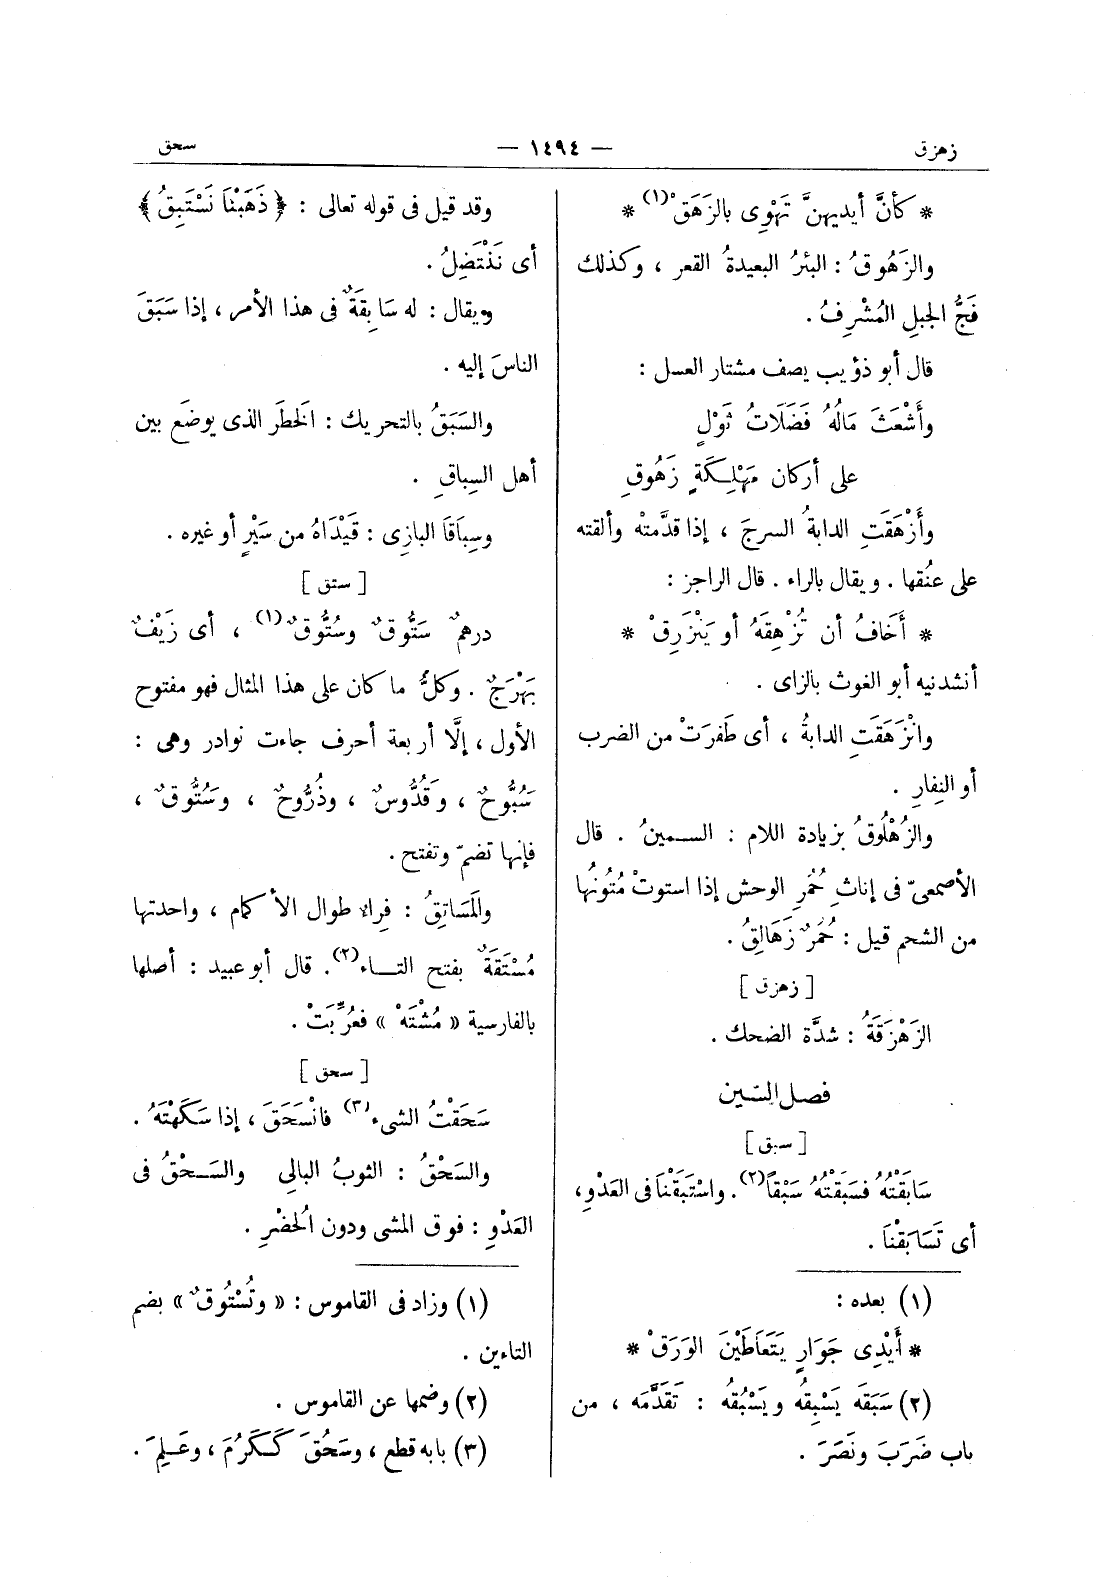 زهزق
— ١٤٩٤ —
سحق
* كأنَّ أيديهنَّ تَهْوِى بالزَهَقْ (١) *
والزَهُوقُ : البئرُ البعيدةُ القعر ، وكذلك
فَجُّ الجبلِ المُشْرِفُ .
قال أبو ذؤيب يصف مشتار العسل :
وأَشْعَثَ مَالُهُ فَضَلَاتُ ثَوْلٍ
على أركان مَهْلِكَةٍ زَهُوقِ
وأَزْهَقَتِ الدابةُ السرجَ ، إذا قدَّمتْه وألقته
على عنُقها . ويقال بالراء . قال الراجز :
* أَخَافُ أن تُزْهِقَهُ أو يَنْزَرِقْ *
أنشدنيه أبو الغوث بالزاى .
وانْزَهَقَتِ الدابةُ ، أى طَفرَتْ من الضرب
أو النِفارِ .
والزُهْلُوقُ بزيادة اللام : السمينُ . قال
الأصمعىّ فى إناثِ حُمُرِ الوحش إذا استوتْ مُتُونُها
من الشحم قيل : حُمُرٌ زَهَالِقُ .
[ زهزق ]
الزَهْزَقَةُ : شدَّة الضحك .
فصل السّين
[ سبق ]
سَابَقْتُهُ فسَبَقْتُهُ سَبْقاً (٢). واسْتَبَقْنَا فى العَدْوِ،
أى تَسَابَقْنَا .
(١) بعده :
* أَيْدِى جَوَارٍ يَتَعَاطَيْنَ الوَرَقْ *
(٢) سَبَقَه يَسْبِقُه ويَسْبُقُه : تَقَدَّمَه ، من
باب ضَرَبَ ونَصَرَ .
وقد قيل فى قوله تعالى : ﴿ ذَهَبْنَا نَسْتَبِقُ ﴾
أى نَنْتَضِلُ .
ويقال : له سَابِقَةٌ فى هذا الأمر ، إذا سَبَقَ
الناسَ إليه .
والسَبَقُ بالتحريك : الَخطَر الذى يوضَع بين
أهل السِباقِ .
وسِبَاقَا البازِى : قَيْدَاهُ من سَيْرٍ أو غيره .
[ ستق ]
درهمٌ سَتُّوقٌ وسُتُّوقٌ (١) ، أى زَيْفٌ
بَهْرَجٌ . وكلُّ ما كان على هذا المثال فهو مفتوح
الأول ، إلَّا أربعة أحرف جاءت نوادر وهى :
سُبُّوحٌ ، وقُدُّوسٌ ، وذُرُّوحٌ ، وسُتُّوقٌ ،
فإنها تضمّ وتفتح .
والَمَسَاتِقُ : فِراء طوال الأكمام ، واحدتها
مُسْتَقَةٌ بفتح التاء (٢). قال أبو عبيد : أصلها
بالفارسية « مُشْتَهْ » فعُرِّبَتْ .
[ سحق ]
سَحَقْتُ الشىء (٣) فانْسَحَقَ ، إذا سَكَهْتَهُ .
والسَحْقُ : الثوبُ البالِى والسَحْقُ فى
العَدْوِ : فوق المشى ودون الُحضْرِ .
(١) وزاد فى القاموس : « وتُسْتُوقٌ » بضم
التاءين .
(٢) وضمها عن القاموس .
(٣) بابه قطع ، وسَحُقَ كَكَرُمَ ، وعَلِمَ .